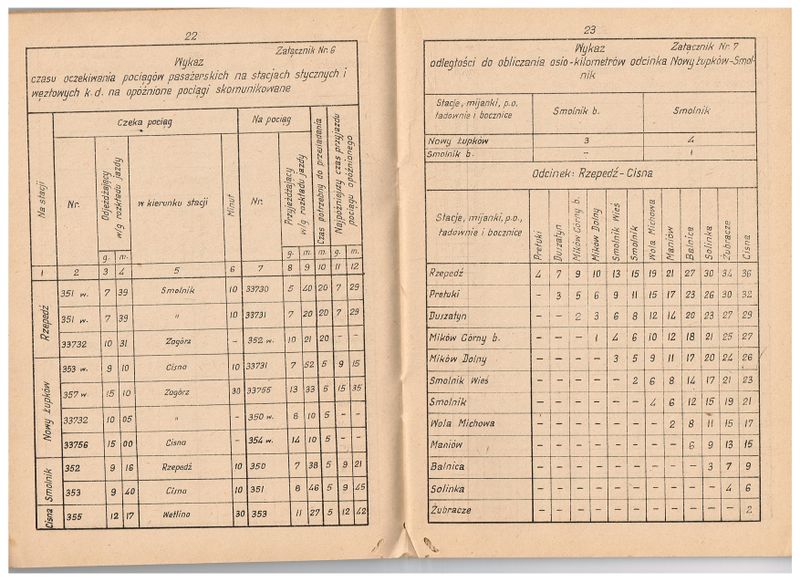 22
Załącznik Nr. 6
Wykaz
czasu oczekiwania pociągów pasażerskich na stacjach stycznych i
węzłowych k.d. na opóźnione pociągi skomunikowane
Na stacji
Czeka pociąg
Na pociąg
Nr.
Dojeżdżający w/g rozkładu jazdy
w kierunku stacji
Minut
Nr.
Przyjeżdżający w/g rozkładu jazdy
Czas potrzebny do przesiadania
Najpóźniejszy czas przyjazdu pociągu opóźnionego
g. m. g. m. m. g. m.
1 2 3 4 5 6 7 8 9 10 11 12
Rzepedź
351 w. 7 39 Smolnik 10 33730 5 40 20 7 29
351 w. 7 39 " 10 33731 7 20 20 7 29
33732 10 31 Zagórz – 352 w. 10 21 20 – –
Nowy Łupków
353 w. 9 10 Cisna 10 33731 7 52 5 9 15
357 w 15 10 Zagórz 30 33755 13 33 5 15 35
33732 10 05 " – 350 w. 8 10 5 – –
33756 15 00 Cisna – 354 w. 14 10 5 – –
Smolnik
352 9 16 Rzepedź 10 350 7 38 5 9 21
353 9 40 Cisna 10 351 8 46 5 9 45
Cisna
355 12 17 Wetlina 30 353 11 27 5 12 42
23
Wykaz Załącznik Nr. 7
odległości do obliczania osio-kilometrów odcinka Nowy Łupków-Smol-
nik
Stacje, mijanki, p.o. Smolnik b. Smolnik
ładownie i bocznice
Nowy Łupków 3 4
Smolnik b. – 1
Odcinek: Rzepedź-Cisna
Stacje, mijanki, p.o.,
ładownie i bocznice
Prełuki Duszatyn Mików Górny b. Mików Dolny Smolnik Wieś Smolnik Wola Michowa Maniów Balnica Solinka Żubracze Cisna
Rzepedź 4 7 9 10 13 15 19 21 27 30 34 36
Prełuki – 3 5 6 9 11 15 17 23 26 30 32
Duszatyn – – 2 3 6 8 12 14 20 23 27 29
Mików Górny b. – – – 1 4 6 10 12 18 21 25 27
Mików Dolny – – – – 3 5 9 11 17 20 24 26
Smolnik Wieś – – – – – 2 6 8 14 17 21 23
Smolnik – – – – – – 4 6 12 15 19 21
Wola Michowa – – – – – – – 2 8 11 15 17
Maniów – – – – – – – – 6 9 13 15
Balnica – – – – – – – – – 3 7 9
Solinka – – – – – – – – – – 4 6
Żubracze – – – – – – – – – – – 2